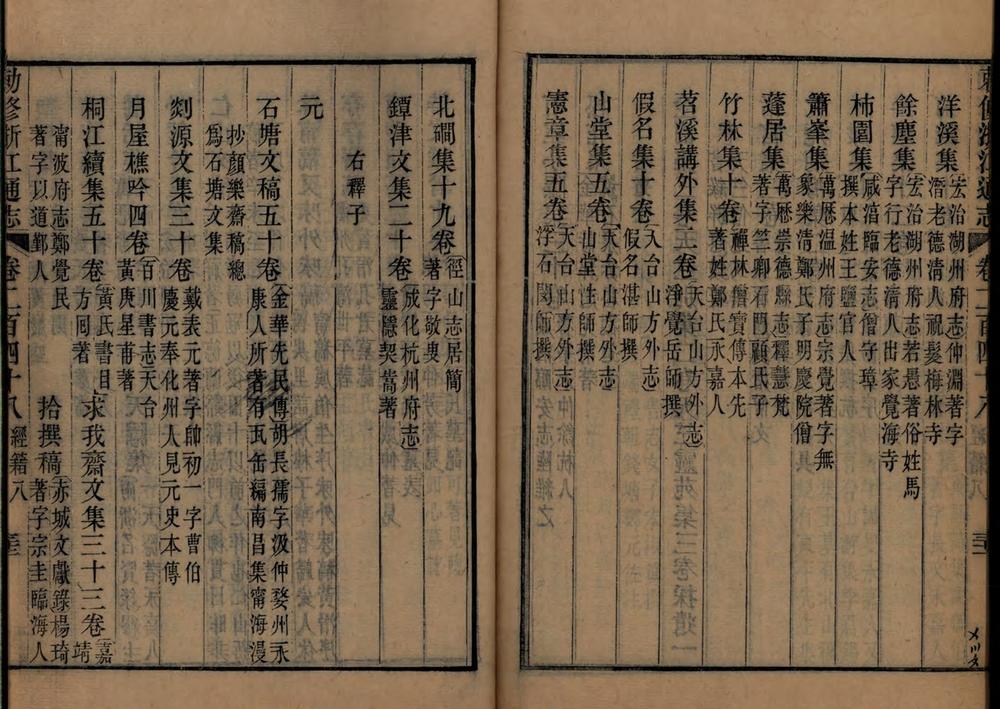 洋溪集宏治湖州府志仲淵著字
潛老德清人祝髮梅林寺
餘塵集宏治湖州府志若愚著俗姓馬
字行老德清人出家覺海寺
柿園集咸淳臨安志僧守璋
撰本姓王鹽官人
蕭峯集萬歷溫州府志宗覺著字無
象樂清鄭氏子明慶院僧
蓬居集萬歷崇德縣志慧梵
著字竺卿石門顧氏子
竹林集十卷禪林僧寶傳本先
著姓鄭氏永嘉人
苕溪講外集三卷天台山方外志
淨覺岳師撰
假名集十卷天台山方外志
假名湛師撰
山堂集五卷天台山方外志
山堂性師撰
憲章集五卷天台山方外志
浮石閔師撰
北磵集十九卷徑山志居簡
著字敬叟
鐔津文集二十卷成化杭州府志
靈隱契嵩著
右釋子
元
石塘文稿五十卷金華先民傳胡長孺字汲仲婺州永
康人所著有瓦缶編南昌集甯海漫
抄顏樂齋稿總
爲石塘文集
剡源文集三十卷戴表元著字帥初一字曹伯
慶元奉化州人見元史本傳
月屋樵吟四卷百川書志天台
黃庚星甫著
桐江續集五十卷黃氏書目
方囘著
求我齋文集三十三卷嘉靖
甯波府志鄭覺民
著字以道鄞人
拾撰稿赤城文獻錄楊琦
著字宗圭臨海人
勅修浙江通志
卷二百四十八
經籍八